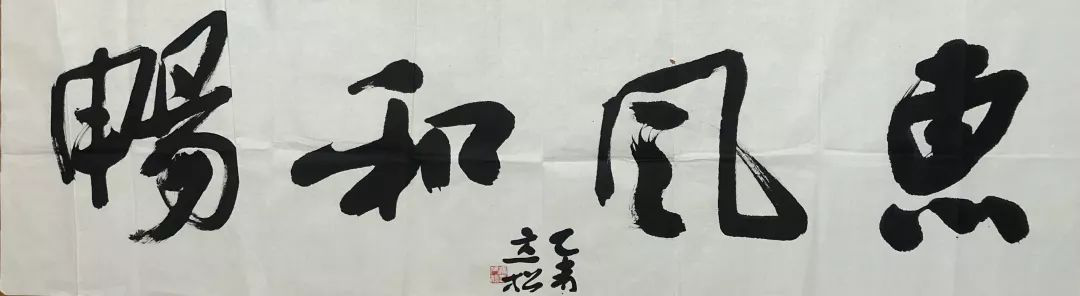 惠風和暢
乙未
松